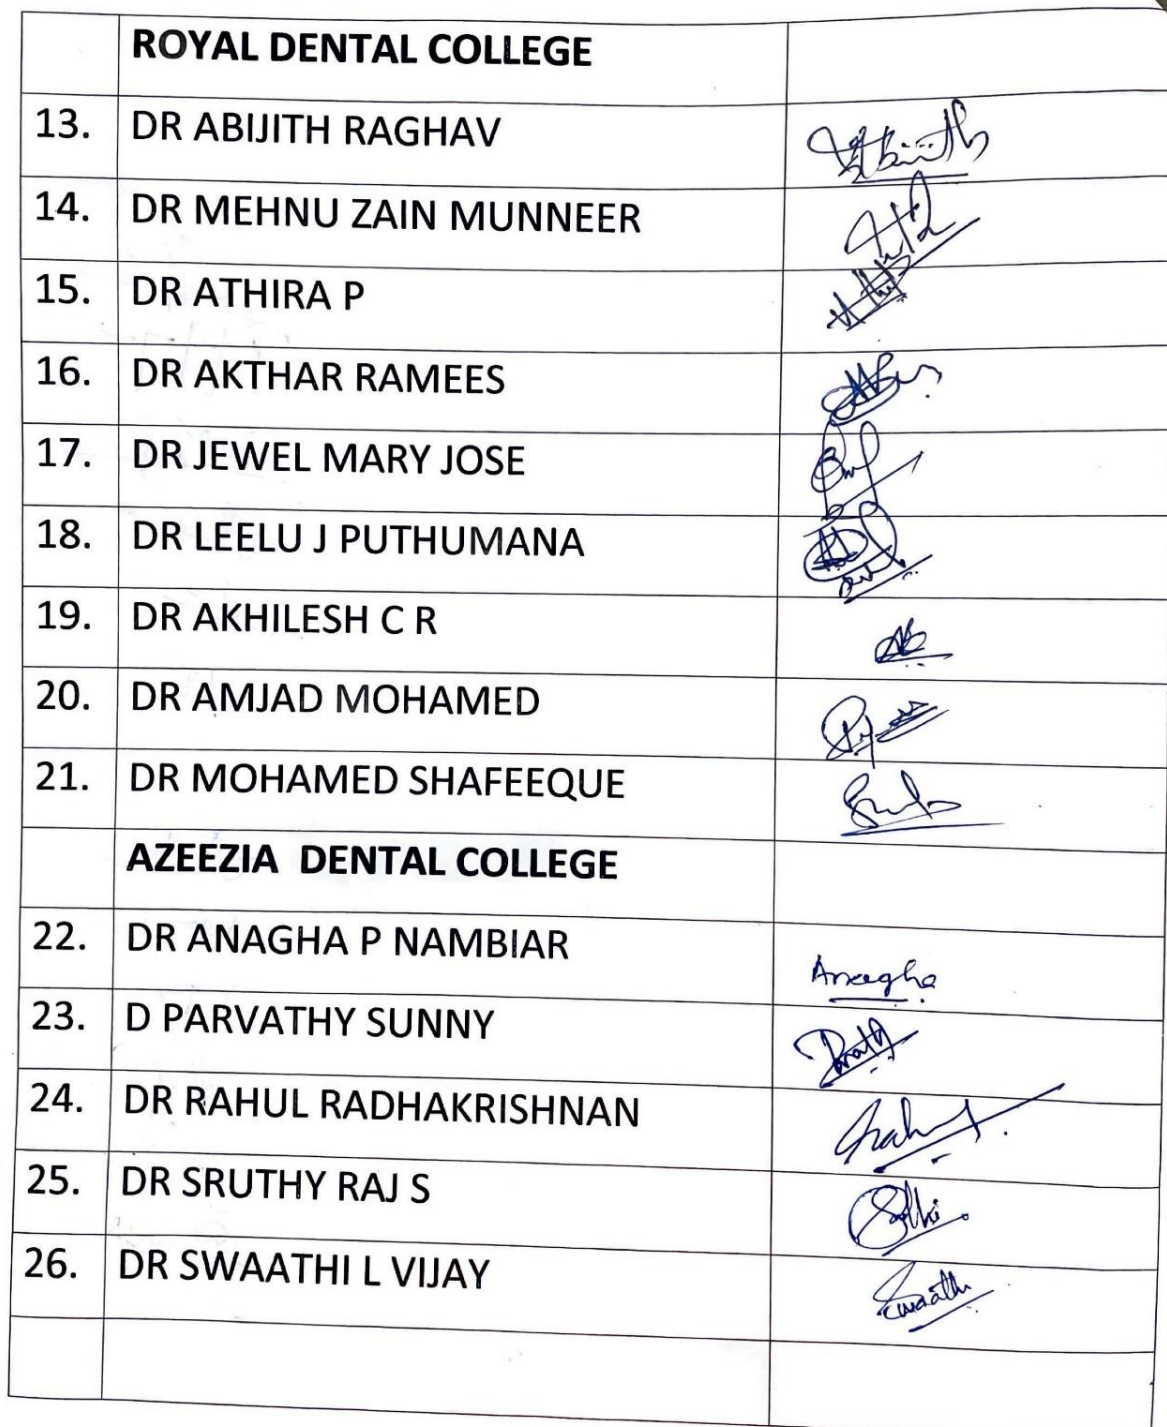 ROYAL DENTAL COLLEGE
13. DR ABIJITH RAGHAV
14. DR MEHNU ZAIN MUNNEER
15. DR ATHIRA P
16. DR AKTHAR RAMEES
17. DR JEWEL MARY JOSE
18. DR LEELU J PUTHUMANA
19. DR AKHILESH C R
20. DR AMJAD MOHAMED
21. DR MOHAMED SHAFEEQUE
AZEEZIA DENTAL COLLEGE
22. DR ANAGHA P NAMBIAR Anagha
23. D PARVATHY SUNNY
24. DR RAHUL RADHAKRISHNAN
25. DR SRUTHY RAJ S
26. DR SWAATHI L VIJAY Swaathi